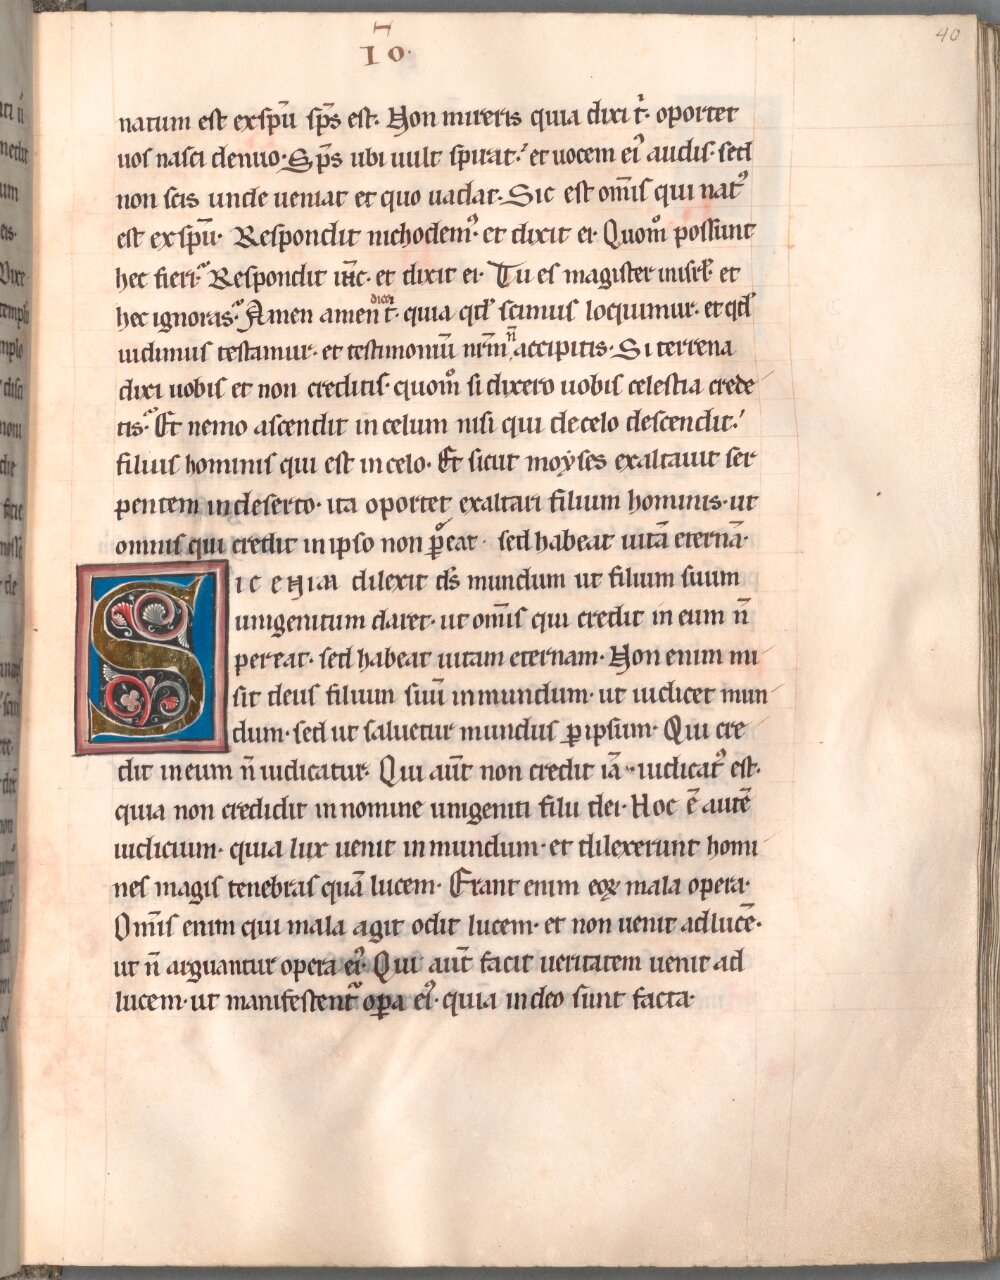 40
Io
natum est ex sp̄u sp̄s est. Non mireris quia dixi t̓. oportet
uos nasci denuo. Sp̄s ubi uult spirat. et uocem ei᾽ audis. sed
non scis unde ueniat et quo uadat. Sic est om̄is qui nat᾽
est ex sp̄u. Respondit nichodem᾽. et dixit ei. Quom̊ possunt
hec fieri. Respondit ih̄c. et dixit ei. Tu es magister in isrl̓. et
hec ignoras. Amen amen dico t̓. quia qd̓ scimus loquimur. et qd̓
uidimus testamur. et testimoniū nr̄m n̄ accipitis. Si terrena
dixi uobis et non creditis. quom̊ si dixero uobis celestia crede
tis. Et nemo ascendit in celum nisi qui de celo descendit.
filius hominis qui est in celo. Et sicut moẏses exaltauit ser
pentem in deserto. ita oportet exaltari filium hominis. ut
omnis qui credit in ipso non ꝑeat. sed habeat uitā eternā.
Sic enim dilexit ds̄ mundum ut filium suum
unigenitum daret. ut om̄is qui credit in eum n̄
pereat. sed habeat uitam eternam. Non enim mi
sit deus filium suū in mundum. ut iudicet mun
dum. sed ut saluetur mundus ꝑ ipsum. Qui cre
dit in eum n̄ iudicatur. Qui aūt non credit iā iudicat᾽ est.
quia non credidit in nomine unigeniti filii dei. Hoc ē autē
iudicium. quia lux uenit in mundum. et dilexerunt homi
nes magis tenebras quā lucem. Erant enim eoꝝ mala opera.
Om̄is enim qui mala agit odit lucem. et non uenit ad lucē.
ut n̄ arguantur opera ei᾽. Qui aūt facit ueritatem uenit ad
lucem. ut manifestent᾽ oꝑa ei᾽. quia in deo sunt facta.